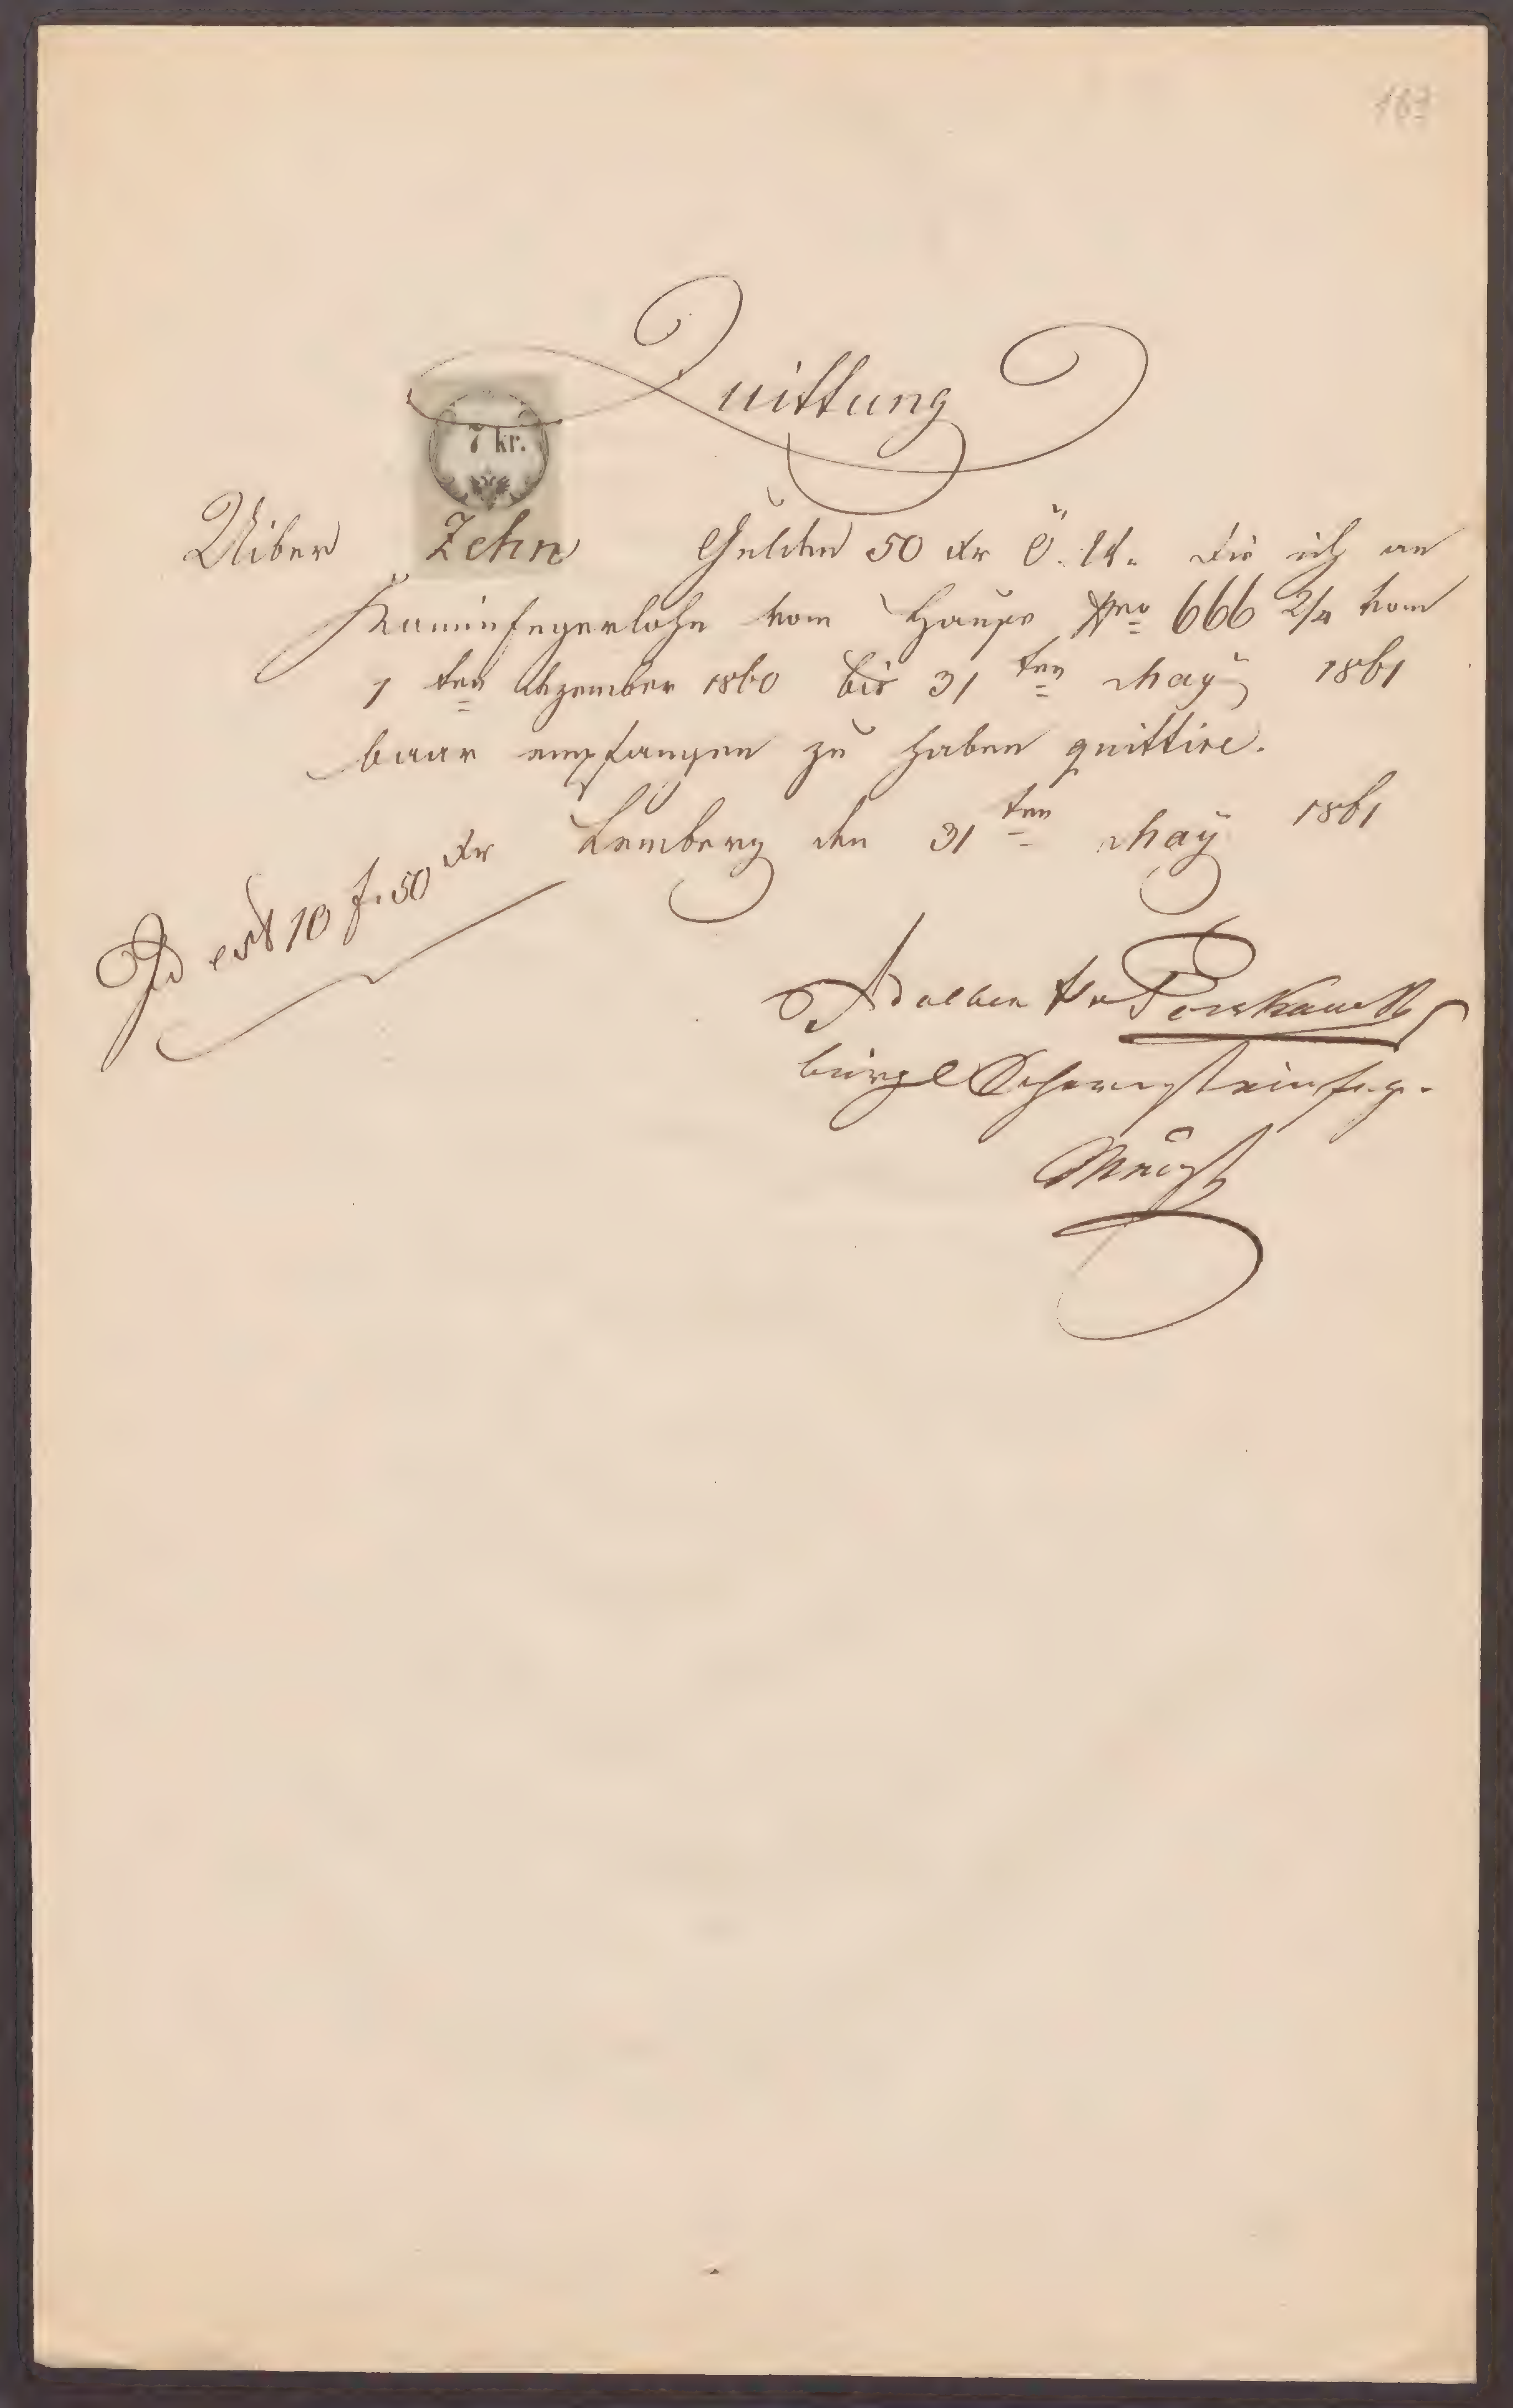 Quittung
7 kr.
Uiber Zehn Gulden 50 xr Ö. W. die ich an
Kaminfegerlohn vom Hause Nro 666 2/4 vom
1 ten Dezember 1860 bis 31 ten May 1861
baar empfangen zu haben quittire.
Lemberg den 31 ten May 1861
Id est 10 f. 50 xr
Adalbert v
bürgl Schornsteinfeg.
Meist